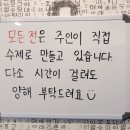 모든 전은 주인이 직접
수제로 만들고 있습니다
다소 시간이 걸려도
양해 부탁드려요